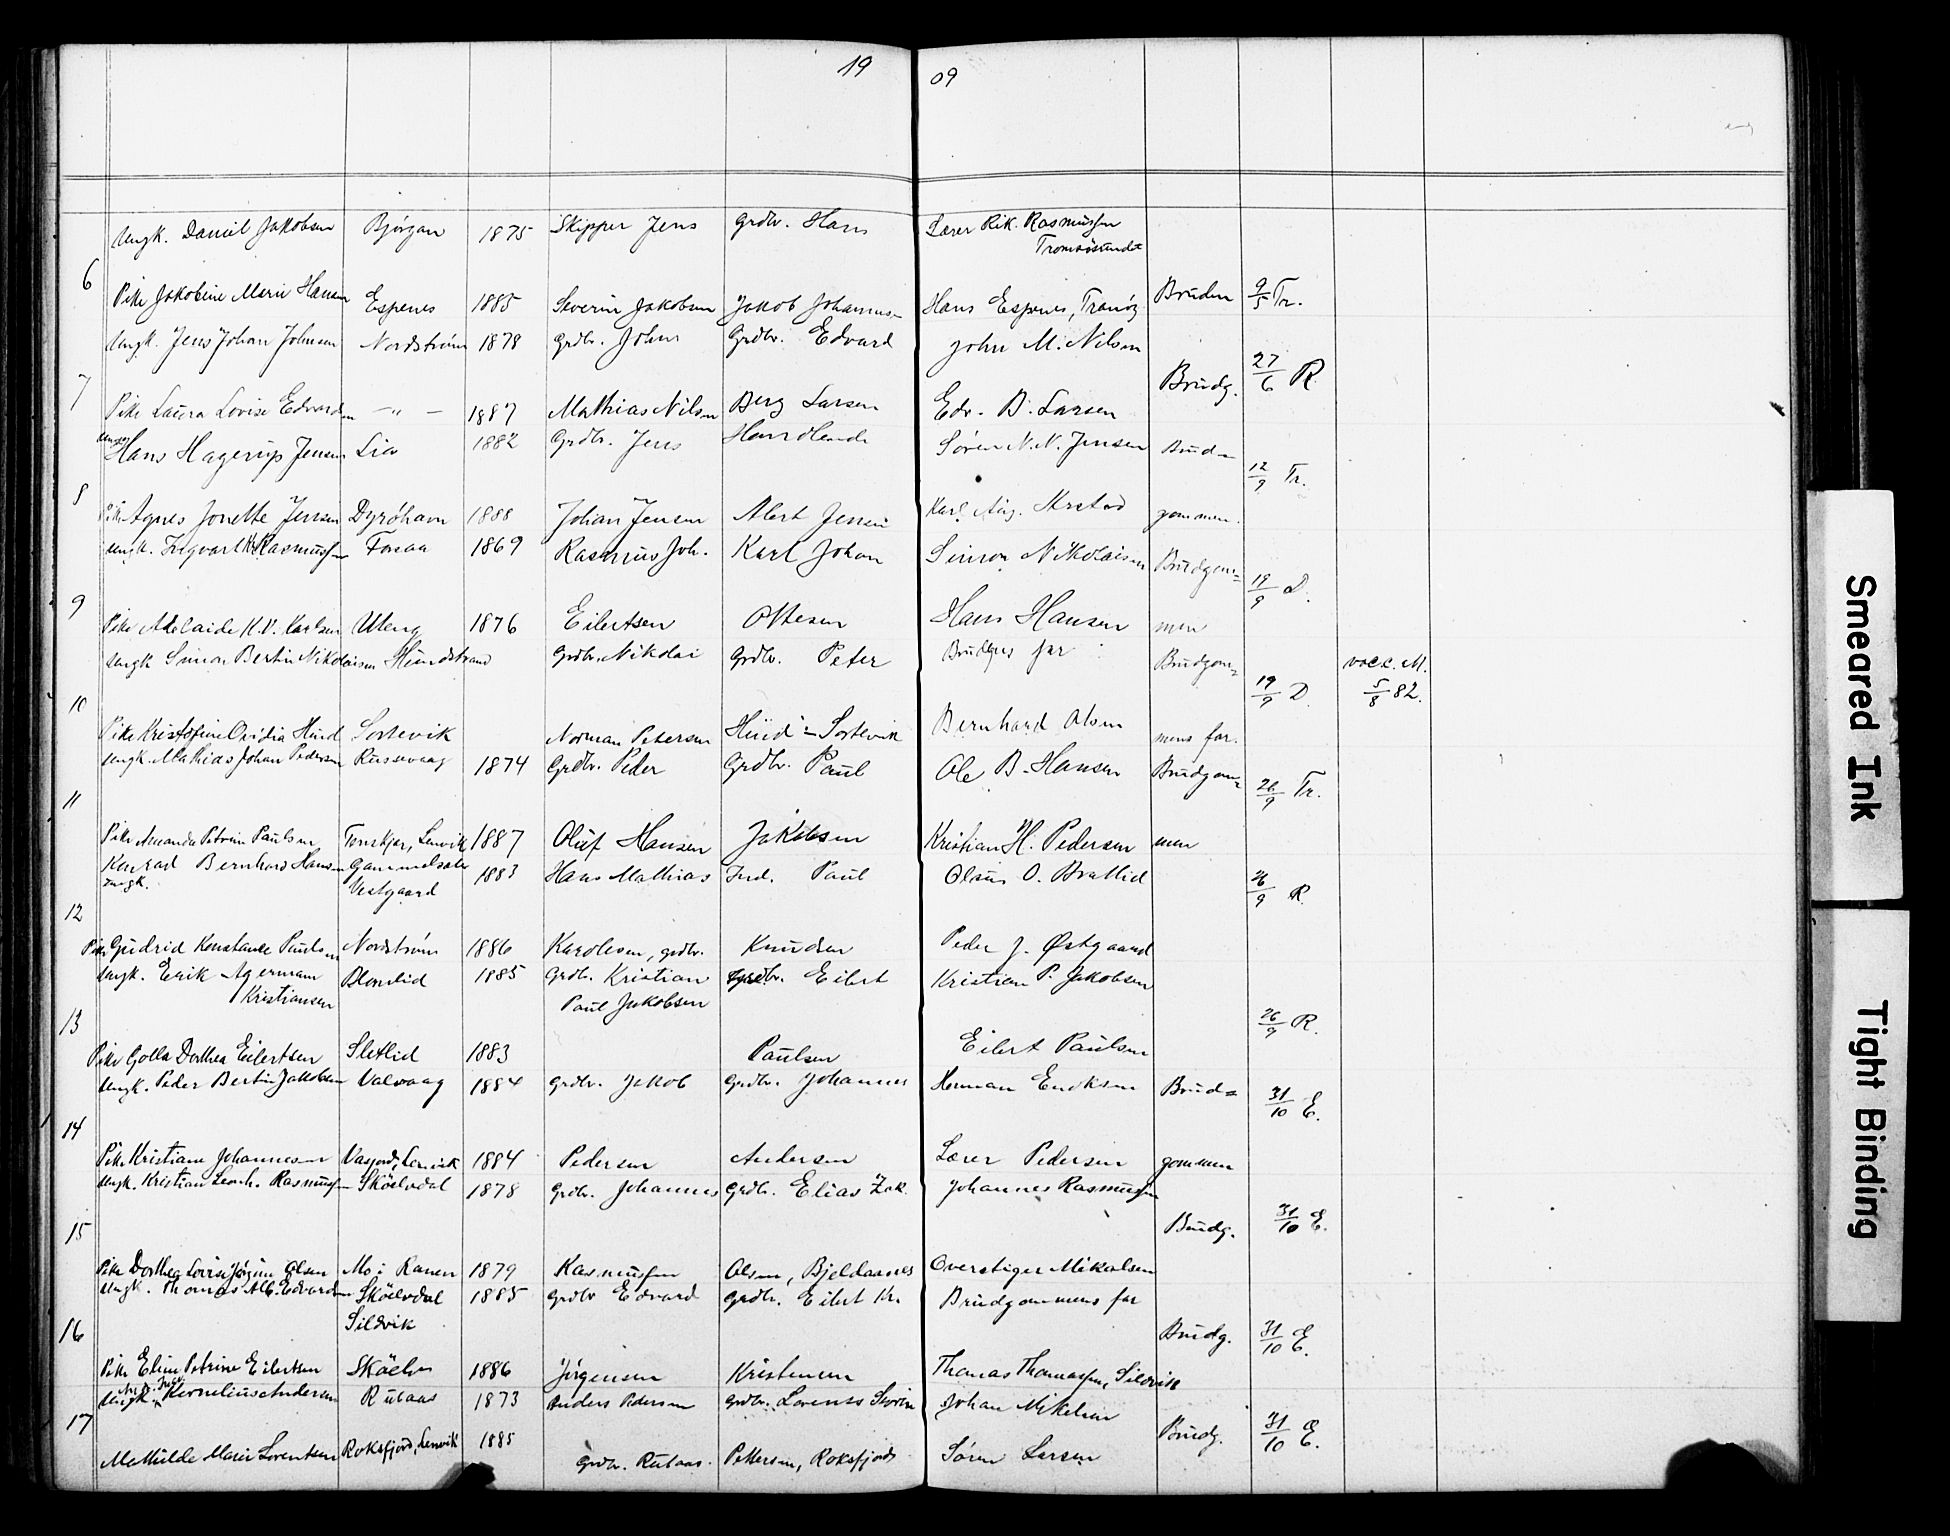 19 09
Ungk. Daniel Jakobsen Bjørgan 1875 Skipper Jens Grdbr. Hans Lærer Rik. Rasmussen
Tromsøsundet
6
Pike Jakobine Marie Hansen Espenes 1885 Severin Jakobsen Jakob Johannes- Hans Espenes, Tranøy Bruden 9/5 Tr.
Ungk. Jens Johan Johnsen Nordstrøm 1878 Grdbr. John Grdbr. Edvard John M. Nilsen
7 Brudg. 27/6 R.
Pike Laura Lovise Edvardsen —„— 1887 Mathias Nilsen Berg Larsen Edv. B. Larsen
Ungk. Hans Hagerup Jensen Lia 1882 Grdbr. Jens Handlende Søren N. N. Jensen Brud=
8 12/9 Tr.
Pike Agnes Jonette Jensen Dyröhavn 1888 Johan Jensen Albert Jensen Karl Aug. Arstad gommen.
Ungk. Ingvart K. Rasmussen Forsaa 1869 Rasmus Joh. Karl Johan Simon Nikolaisen Brudgom=
9 19/9 D.
Pike Adelaide K. V. Karlsen Uteng 1876 Eilertsen Ottesen Hans Hansen men
Ungk Simon Bertin Nikolaisen Hundstrand Grdbr. Nikolai Grdbr. Peter Brudgns far Brudgom= vacc. M.
10 19/9 D. 5/8 82.
Pike Kristofine Ovidia Hind Sortevik Norman Petersen Hind - Sortevik Bernhard Olsen mens far.
Ungk. Mathias Johan Pedersen Russevaag 1874 Grdbr. Peder Grdbr. Paul Ole B. Hansen Brudgom=
11 26/9 Tr.
Pike Amanda Petrine Paulsen Tennskjer, Lenvik 1887 Oluf Hansen Jakobsen Kristian H. Pedersen men
Konrad Bernhard Hansen Gammelsæter 1883 Hans Mathias Ind. Paul Olaus O. Bratlid
Ungk. Vestgaard 26/9 R.
12
Pike Gudrid Konstanse Paulsen Nordstrøm 1886 Karolesen, grdbr. Knudsen Peder J. Østgaard
Ungk. Erik Agerman Blomlid 1885 Grdbr. Kristian Grdbr. Eilert Kristian P. Jakobsen
Kristiansen Paul Jakobsen
13 26/9 R.
Pike Golla Dorthea Eilertsen Sletlid 1883 Paulsen Eilert Paulsen
Ungk. Peder Bertin Jakobsen Valvaag 1884 Grdbr. Jakob Grdbr. Johannes Herman Enoksen Brud=
14 31/10 E.
Pike Kristiane Johannesen Vasjord, Lenvik 1884 Pedersen Andersen Lærer Pedersen gommen
Ungk. Kristian Leonh. Rasmussen Sköelvdal 1878 Grdbr. Johannes Grdbr. Elias Zak. Johannes Rasmussen
15 Brudg. 31/10 E.
Pike Dorthea Lovise Jørgine Olsen Mo i Ranen 1879 Rasmussen Olsen, Bjeldaanes Overstiger Mikalsen
Ungk. Thomas Alb. Edvardsen Sköelvdal 1885 Grdbr Edvard Grdbr. Eilert Kr. Brudgommens far
16 Sildvik Brudg. 31/10 E.
Pike Eline Petrine Eilertsen Sköelv 1886 Jörgensen Kristensen Thomas Thomassen, Sildvik
Ungk. Kornelius Andersen Rubaas 1873 Anders Pedersen Grdbr. Lorents Johan Mikelsen
17 Brudg. 31/10 E.
Mathilde Marie Lorentsen Roksfjord, Lenvik 1885 Grdbr. Rubaas. Pettersen, Roksfjord Søren Larsen
Smeared Ink
Tight Binding